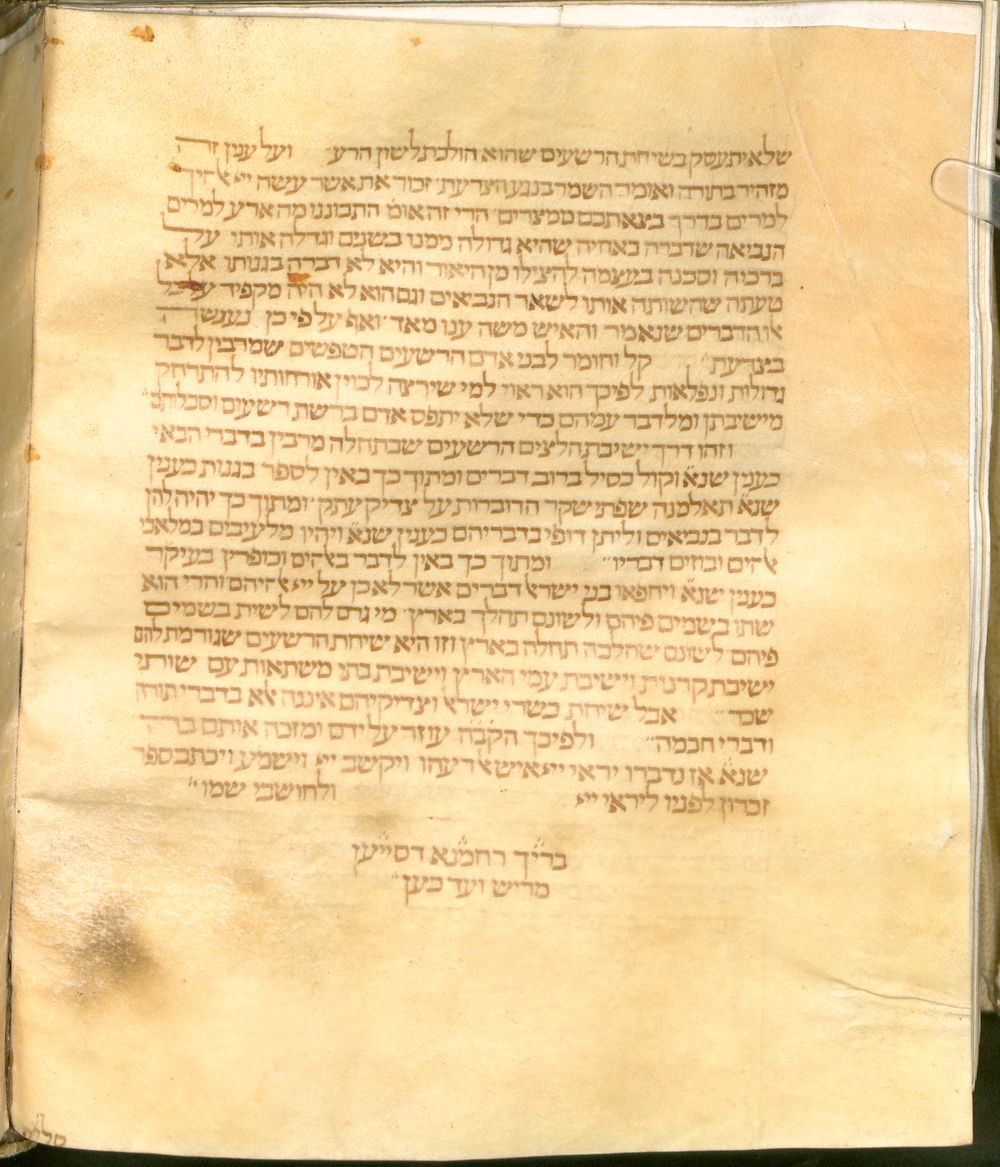 שלא יתעסק בשיחת הרשעים שהוא הולכת לשון הרע״ ועל ענין זה
מזהיר בתורה ואומ׳ השמר בנגע הצרעת׳ זכור את אשר עשה ייי אלהיך
למרים בדרך בצאתכם ממצרים׳ הרי זה אומ׳ התבוננו מה ארע למרים
הנביאה שדברה באחיה שהיא גדולה ממנו בשנים וגדלה אותו על
ברכיה וסכנה בעצמה להצילו מן היאור והיא לא דברה בגנותו אלא
טעתה שהשותה אותו לשאר הנביאים וגם הוא לא היה מקפיד על כל
אלו הדברים שנאמר והאיש משה ענו מאד׳ ואף על פי כן נענשה
בצרעת״ קל וחומר לבני אדם הרשעים הטפשים שמרבין לדבר
גדולות ונפלאות לפיכך הוא ראוי למי שירצה לכוין אורחותיו להתרחק
מישיבתן ומלדבר עמהם כדי שלא יתפס אדם ברשת רשעים וסכלותם״
וזהו דרך ישיבת הלצים הרשעים שבתחלה מרבין בדברי הבאי
כענין שנא׳ וקול כסיל ברוב דברים ומתוך כך באין לספר בגנות כענין
שנא׳ תאלמנה שפתי שקר הדוברות על צדיק עתק׳ ומתוך כך יהיה להן
לדבר בנביאים וליתן דופי בדבריהם כענין שנא׳ ויהיו מלעיבים במלאכי
אלהים ובוזים דבריו״ ומתוך כך באין לדבר באלהים וכופרין בעיקר
כענין שנא׳ ויחפאו בני ישראל דברים אשר לא כן על ייי אלהיהם והרי הוא
שתו בשמים פיהם ולשונם תהלך בארץ׳ מי גרם להם לשית בשמים
פיהם׳ לשונם שהלכה תחלה בארץ וזו היא שיחת הרשעים שגורמת להם
ישיבת קרנות וישיבת עמי הארץ וישיבת בתי משתאות עם שותי
שכר״ אבל שיחת כשרי ישראל וצדיקיהם איננה אלא בדברי תורה
ודברי חכמה״ ולפיכך הקב״ה עוזר על ידם ומזכה אותם בריה
שנא׳ אז נדברו יראי ייי איש אל רעהו ויקשב ייי וישמע ויכתב ספר
זכרון לפניו ליראי ייי ולחושבי שמו״
בריך רחמנא דסייען
מריש ועד כען״